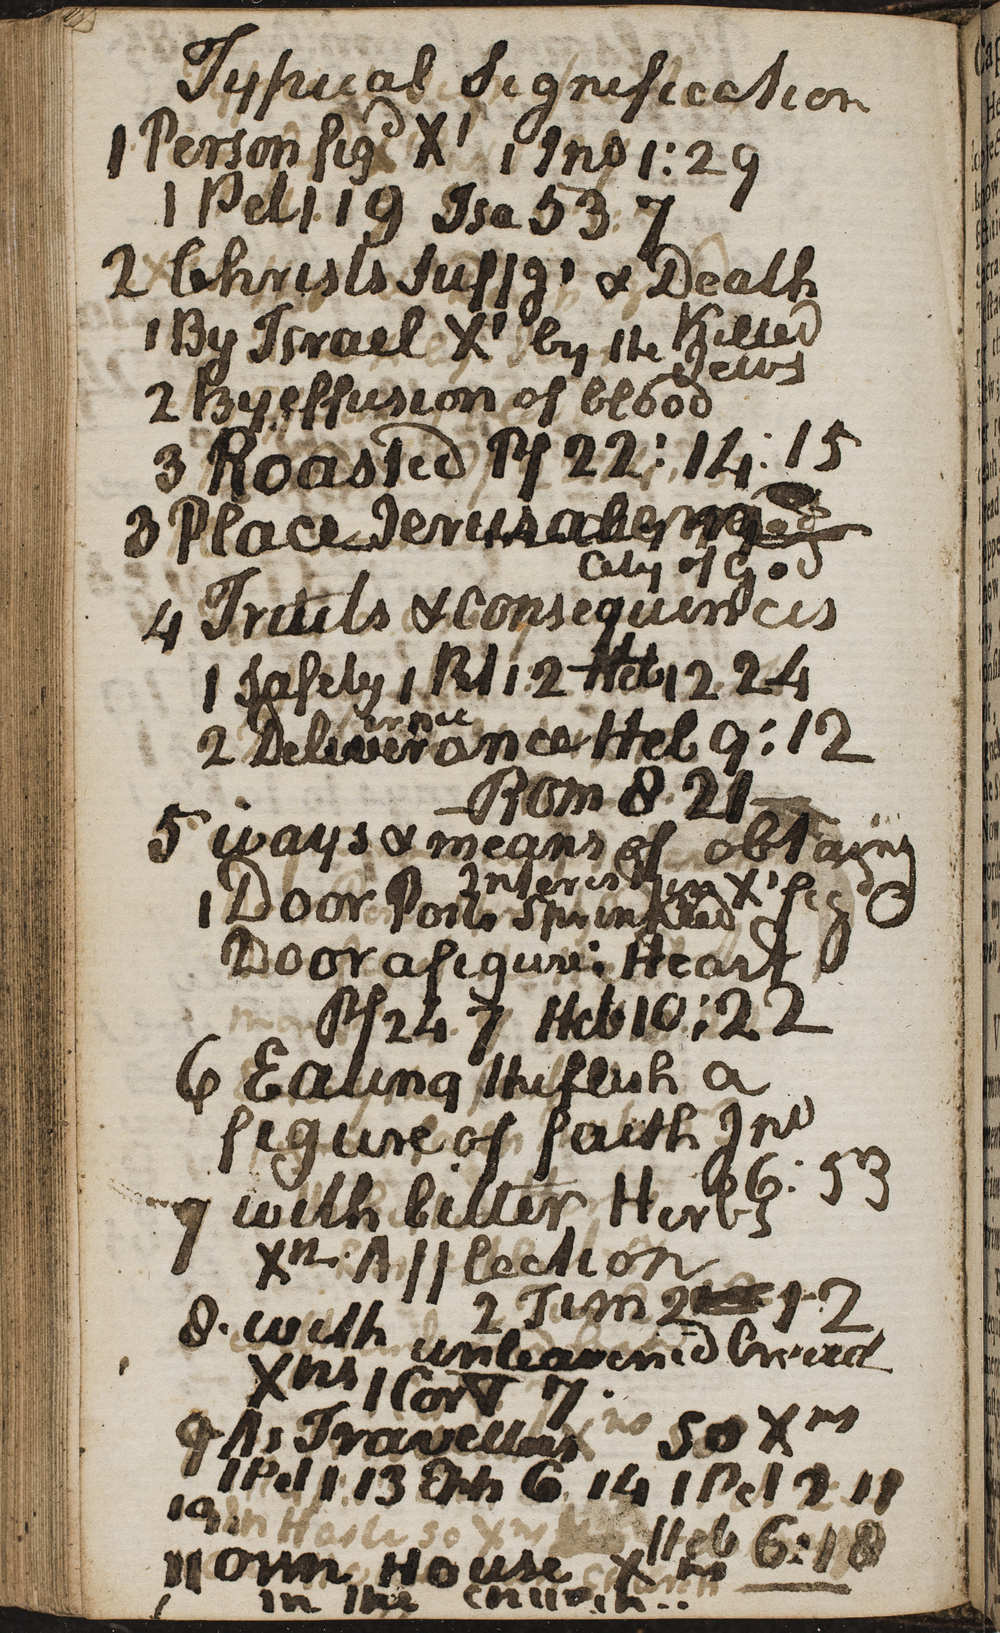 Typical Signification
1 Person figd Xt 1 Jno 1:29
1 Pet 1 19 Isa 53 7
2 Christs suffgs & Death
1 By Israel Xt by the Killed
Jews
2 By effusion of blood
3 Roasted Ps 22: 14: 15
3 Place Jerusalem
City of God
4 Fruits & Consequences
1 Safety 1 Pet 1 2 Heb 12 24
2 Deliverance Heb 9:12
Rom 8 21
5 ways & means of obtaing
Interest in Xt figd
1 Door Posts Sprinkled
Door a figure: Heart
Ps 24 7 Heb 10:22
6 Eating the flesh a
figure of faith Jno
6:53
7 with bitter Herbs
Xn Afflection
2 Tim 2 12
8 with unleavened bread
Xns 1 Cor 5 7
9 As Travellers so Xns
1 Pet 1 13 Eph 6 14 1 Pet 2 11
10 in Haste so Xns Heb 6:18
11 own House Xns
in the church